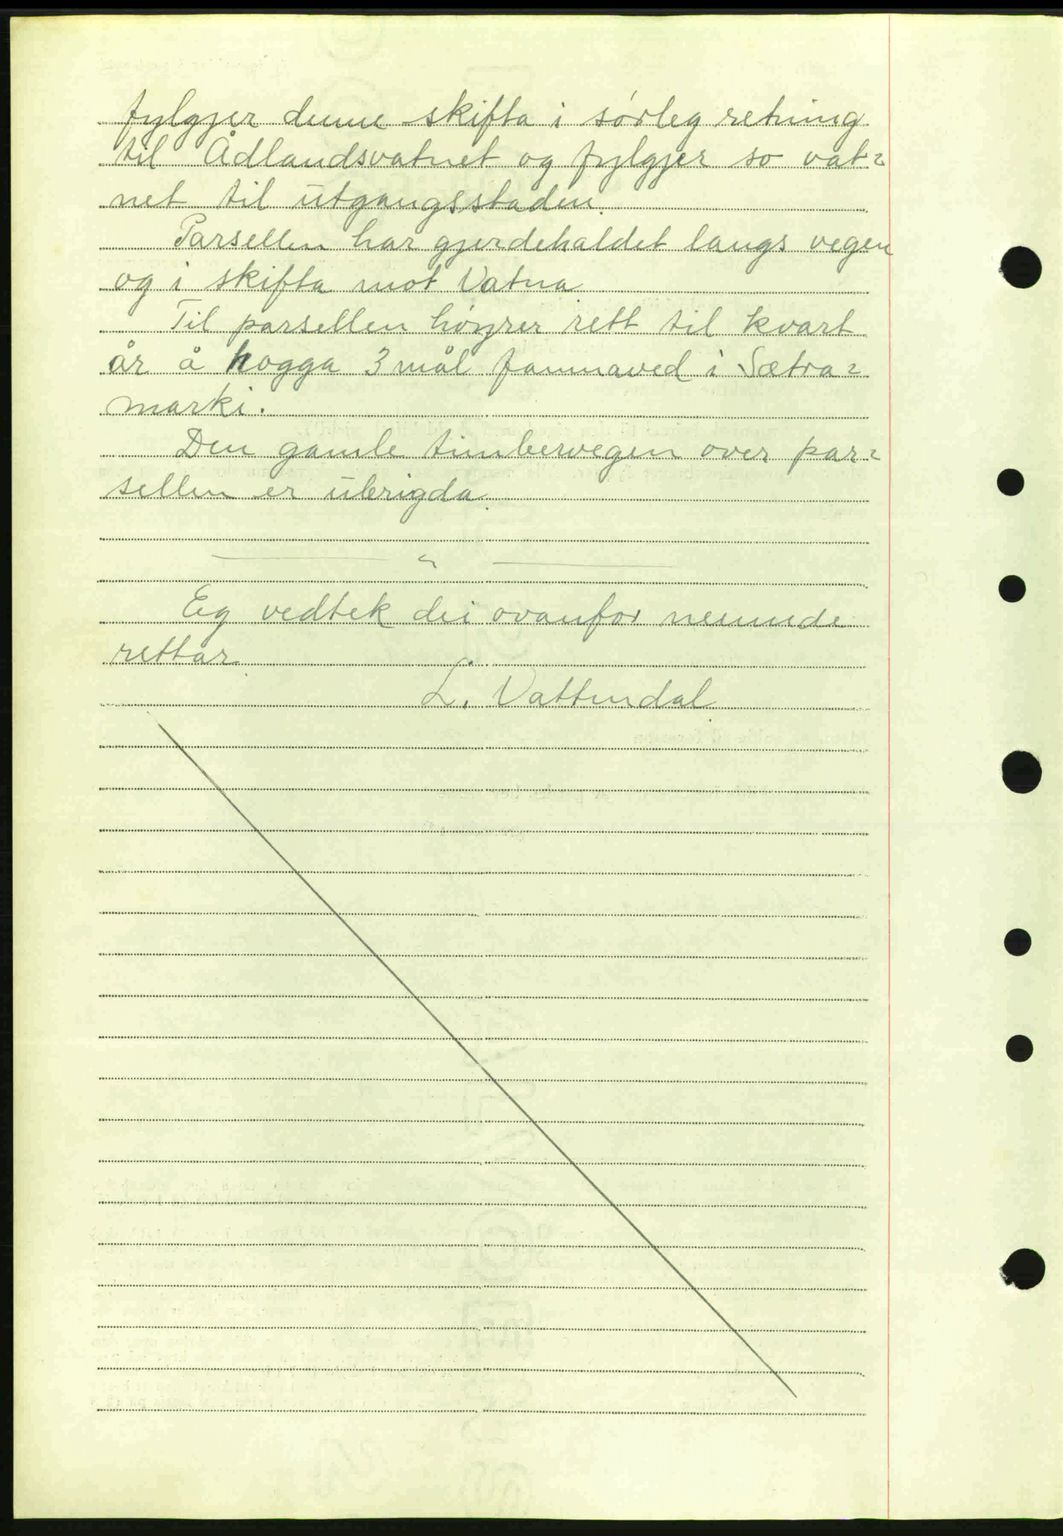 fylgjer denne skifta i sørleg retning
til Ådlandsvatnet og fylgjer so vat=
net til utgangsstaden.
Parsellen har gjerdehaldet langs vegen
og i skifta mot Vatna
Til parsellen høyrer rett til kvart
år å hogga 3 mål famnaved i Sætra=
marki.
Den gamle timbervegen over par=
sellen er ubrigda.
— " —
Eg vedtek dei ovanfor nemnde
rettar.
L. Vattendal